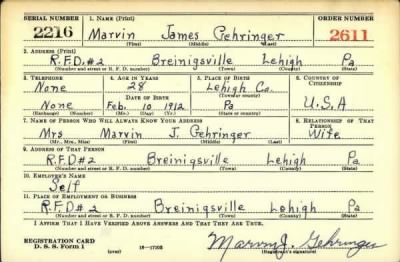 SERIAL NUMBER 1. NAME (Print) ORDER NUMBER
2216 Marvin James Gehringer 2611
(First) (Middle) (Last)
2. ADDRESS (Print)
R.F.D. #2 Breinigsville Lehigh Pa
(Number and street or R. F. D. number) (Town) (County) (State)
3. TELEPHONE 4. AGE IN YEARS 5. PLACE OF BIRTH 6. COUNTRY OF CITIZENSHIP
None 28 Lehigh Co.
DATE OF BIRTH (Town or county)
None Feb. 10 1912 Pa U.S.A
(Exchange) (Number) (Mo.) (Day) (Yr.) (State or country)
7. NAME OF PERSON WHO WILL ALWAYS KNOW YOUR ADDRESS 8. RELATIONSHIP OF THAT PERSON
Mrs Marvin J. Gehringer Wife
(Mr., Mrs., Miss) (First) (Middle) (Last)
9. ADDRESS OF THAT PERSON
R.F.D #2 Breinigsville Lehigh Pa
(Number and street or R. F. D. number) (Town) (County) (State)
10. EMPLOYER'S NAME
Self
11. PLACE OF EMPLOYMENT OR BUSINESS
R.F.D #2 Breinigsville Lehigh Pa
(Number and street or R. F. D. number) (Town) (County) (State)
I AFFIRM THAT I HAVE VERIFIED ABOVE ANSWERS AND THAT THEY ARE TRUE.
REGISTRATION CARD
D. S. S. Form 1 (over) Marvin J. Gehringer
(Registrant's signature)